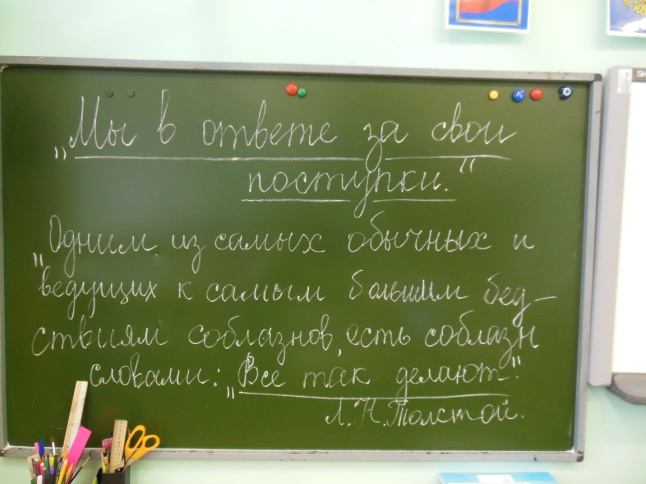 „Мы в ответе за свои
поступки.“
„Одним из самых обычных и
ведущих к самым большим бед-
ствиям соблазнов, есть соблазн
словами: „Все так делают“.
Л.Н.Толстой.